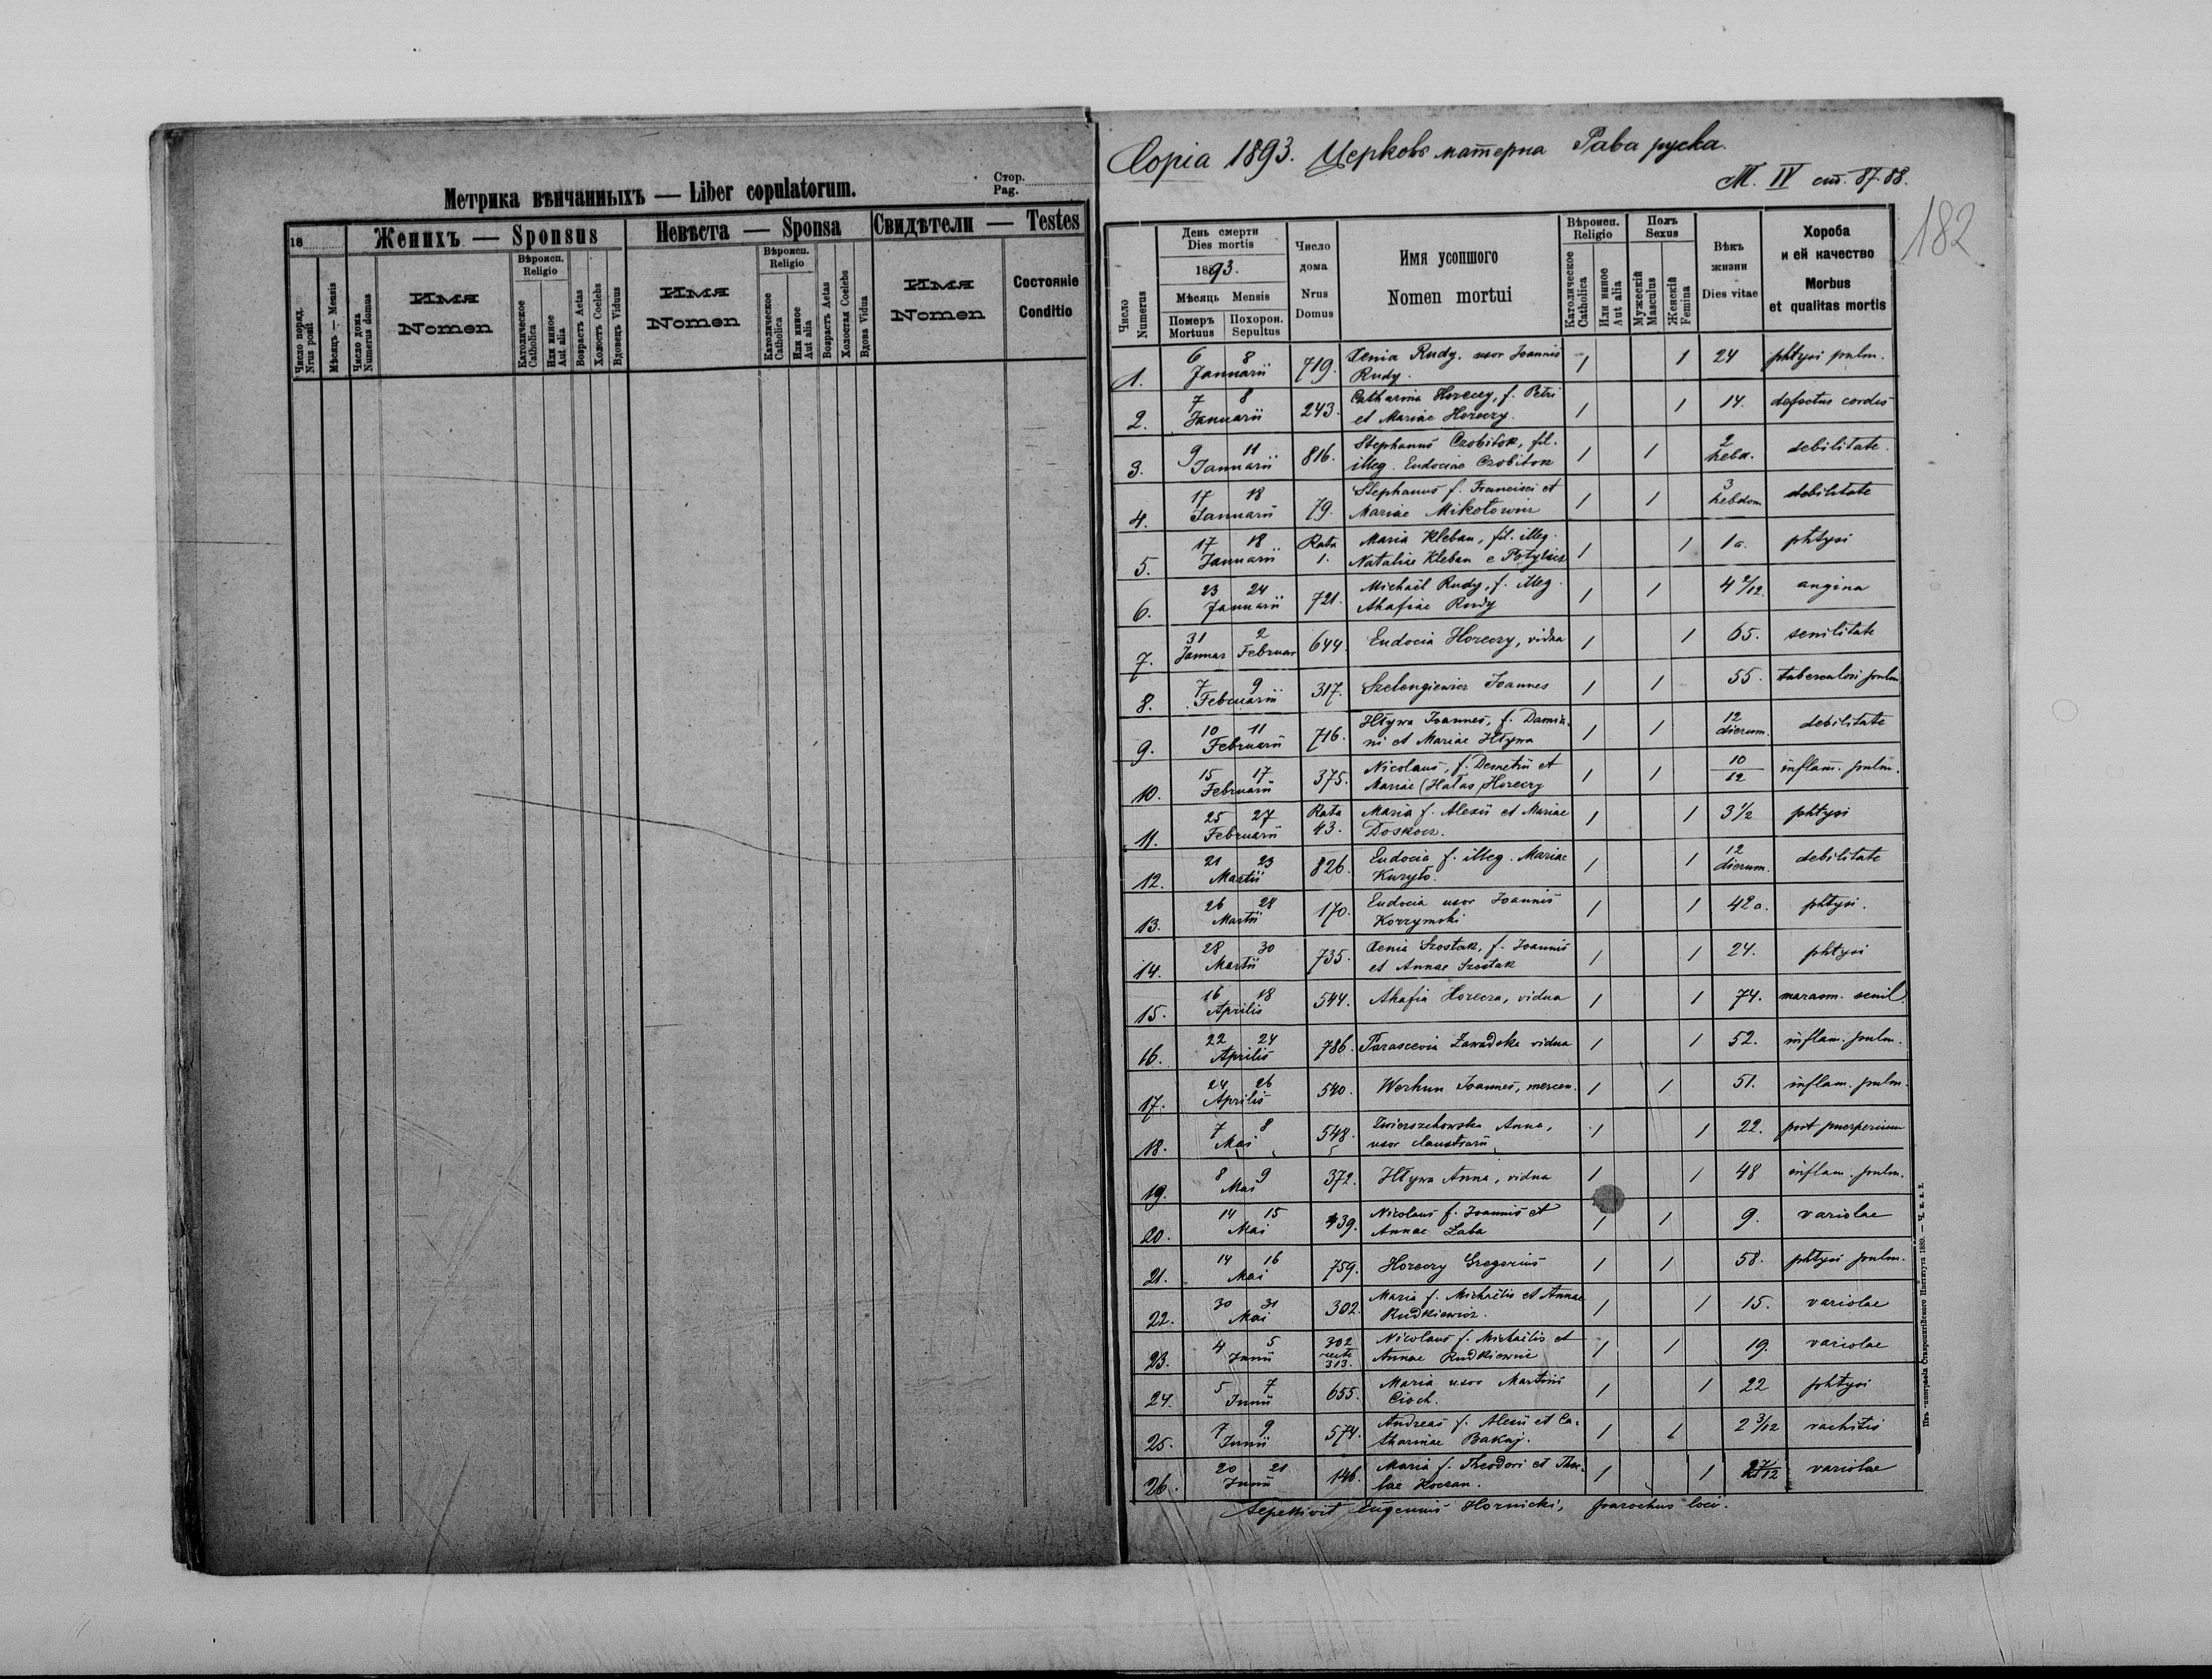 Метрика вѣнчанныхъ — Liber copulatorum.
Стор.
Pag.
18
Женихъ — Sponsus
Невѣста — Sponsa
Свидѣтели — Testes
Число поряд.
Nrus posit
Мѣсяць — Mensis
Число дома
Numerus domus
Имя
Nomen
Вѣроисп.
Religio
Католическое
Catholica
Или иное
Aut alia
Возрастъ Aetas
Холостъ Coelebs
Вдовецъ Viduus
Имя
Nomen
Вѣроисп.
Religio
Католическое
Catholica
Или иное
Aut alia
Возрастъ Aetas
Холостая Coelebs
Вдова Vidua
Имя
Nomen
Состояніе
Conditio
Copia 1893. Церковь матерна Рава руска.
М. IV ст. 87-88.
182
Число
Numerus
День смерти
Dies mortis
1893.
Мѣсяць Mensis
Померъ
Mortuus
Похорон.
Sepultus
Число
дома
Nrus
Domus
Имя усопшого
Nomen mortui
Вѣроисп.
Religio
Католическое
Catholica
Или иное
Aut alia
Полъ
Sexus
Мужескій
Masculus
Женскій
Femina
Вѣкъ
жизни
Dies vitae
Хороба
и ей качество
Morbus
et qualitas mortis
1. 6 8 Januarii 719. Xenia Rudy, uxor Joannis 1 1 24 phtysi pulm.
Rudy.
2. 7 8 Januarii 243. Catharina Horeczy, f. Petri 1 1 14. defectus cordis
et Mariae Horeczy.
3. 9 11 Januarii 816. Stephanus Czobitok, fil. 1 1 2 hebd. debilitate.
illeg. Eudociae Czobitok
4. 17 18 Januarii 79. Stephanus f. Francisci et 1 1 3 hebdom debilitate
Mariae Mikołowicz
5. 17 18 Januarii Rata 1. Maria Kleban, fil. illeg. 1 1 1 a. phtysi
Nataliae Kleban e Potylicz
6. 23 24 Januarii 721. Michaël Rudy, f. illeg. 1 1 4 2/12. angina
Ahafiae Rudy
7. 31 Januar 2 Februar 644. Eudocia Horeczy, vidua 1 1 65. senilitate
8. 7 9 Februarii 317. Szelengiewicz Joannes 1 1 55. tuberculosi pulm
9. 10 11 Februarii 716. Hływa Joannes, f. Damia- 1 1 12 dierum. debilitate
ni et Mariae Hływa
10. 15 17 Februarii 375. Nicolaus, f. Demetrii et 1 1 10/12 inflam. pulm.
Mariae (Hałas) Horeczy
11. 25 27 Februarii Rata 43. Maria f. Alexii et Mariae 1 1 3 1/2 phtysi
Doskocz.
12. 21 23 Martii 826. Eudocia f. illeg. Mariae 1 1 12 dierum. debilitate
Kuryło.
13. 26 28 Martii 170. Eudocia uxor Joannis 1 1 42 a. phtysi.
Korzymski
14. 28 30 Martii 735. Xenia Szostak, f. Joannis 1 1 24. phtysi
et Annae Szostak
15. 16 18 Aprilis 544. Ahafia Horecza, vidua 1 1 74. marasm. senil.
16. 22 24 Aprilis 786. Parascevia Zawadska vidua 1 1 52. inflam. pulm.
17. 24 26 Aprilis 540. Werhun Joannes, mercen. 1 1 51. inflam. pulm.
18. 7 8 Mai 548. Zwierzchowska Anna, 1 1 22. post puerperium
uxor claustrarii
19. 8 9 Mai 372. Hływa Anna, vidua 1 1 48 inflam. pulm.
20. 14 15 Mai 439. Nicolaus f. Joannis et 1 1 9. variolae
Annae Żaba
21. 14 16 Mai 759. Horeczy Gregorius 1 1 58. phtysi pulm.
22. 30 31 Mai 302. Maria f. Michaëlis et Annae 1 1 15. variolae
Rudkiewicz.
23. 4 5 Junii 302 recte 313. Nicolaus f. Michaëlis et 1 1 19. variolae
Annae Rudkiewicz
24. 5 7 Junii 655. Maria uxor Martini 1 1 22 phtysi
Cioch.
25. 7 9 Junii 574. Andreas f. Alexii et Ca- 1 1 2 3/12 rachitis
tharinae Bakaj.
26. 20 21 Junii 146. Maria f. Theodori et Thec- 1 1 variolae
lae Koczan.
Sepelivit Eugenius Hornicki, parochus loci.
Изъ типографіи Ставропигійского Института 1889. — Ч. к. в. 2.